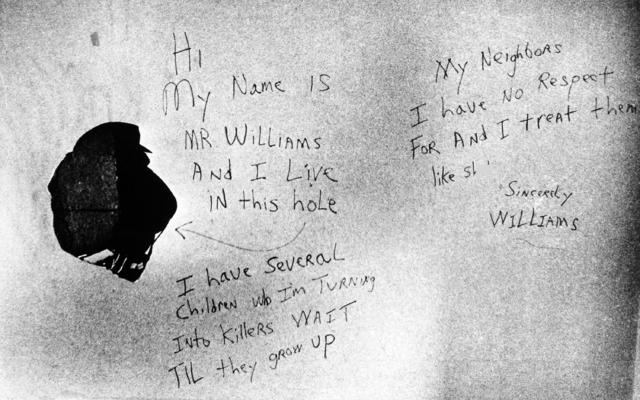 Hi
My Name is
MR Williams
And I Live
iN this hole
I have Several
Children who I'm Turning
Into Killers WAIT
TiL they grow UP
My Neighbors
I have No Respect
For And I treat them
like
Sincerely
Williams